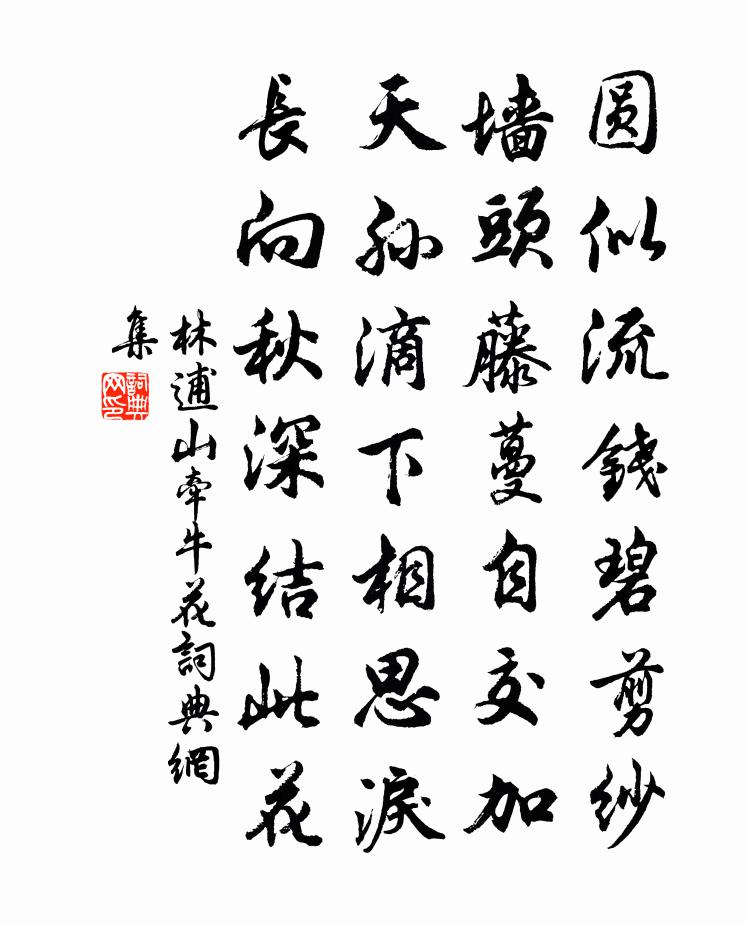 圆似流錢碧剪紗
墙頭藤蔓自交加
天孫滴下相思淚
長向秋深結此花
林逋山牽牛花詞典網
集
詞典网印